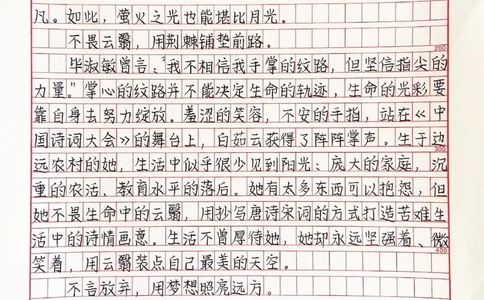 凡。如此，萤火之光也能堪比月光。
不畏云翳，用荆棘铺垫前路。
200
毕淑敏曾言："我不相信我手掌的纹路，但坚信指尖的
力量。"掌心的纹路并不能决定生命的轨迹，生命的光彩要
靠自身去努力绽放。羞涩的笑容，不安的手指，站在《中
国诗词大会》的舞台上，白茹云获得了阵阵掌声。生于边
300
远农村的她，生活中似乎很少见到阳光：庞大的家庭，沉
重的农活、教育水平的落后。她有太多东西可以抱怨，但
她不畏生命中的云翳，用抄写唐诗宋词的方式打造苦难生
活中的诗情画意。生活不曾厚待她，她却永远坚强着、微
400
笑着，用云翳装点自己最美的天空。
不言放弃，用梦想照亮远方。